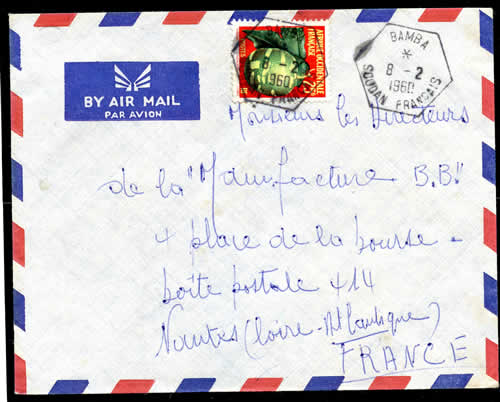 BAMBA
8 - 2
1960
SOUDAN FRANÇAIS
AFRIQUE OCCIDENTALE
FRANÇAISE
POSTES
8
1960
BY AIR MAIL
PAR AVION
Messieurs les Directeurs
de la "Manufacture B.B."
4 place de la bourse -
boîte postale 414
Nantes (Loire-Atlantique)
FRANCE